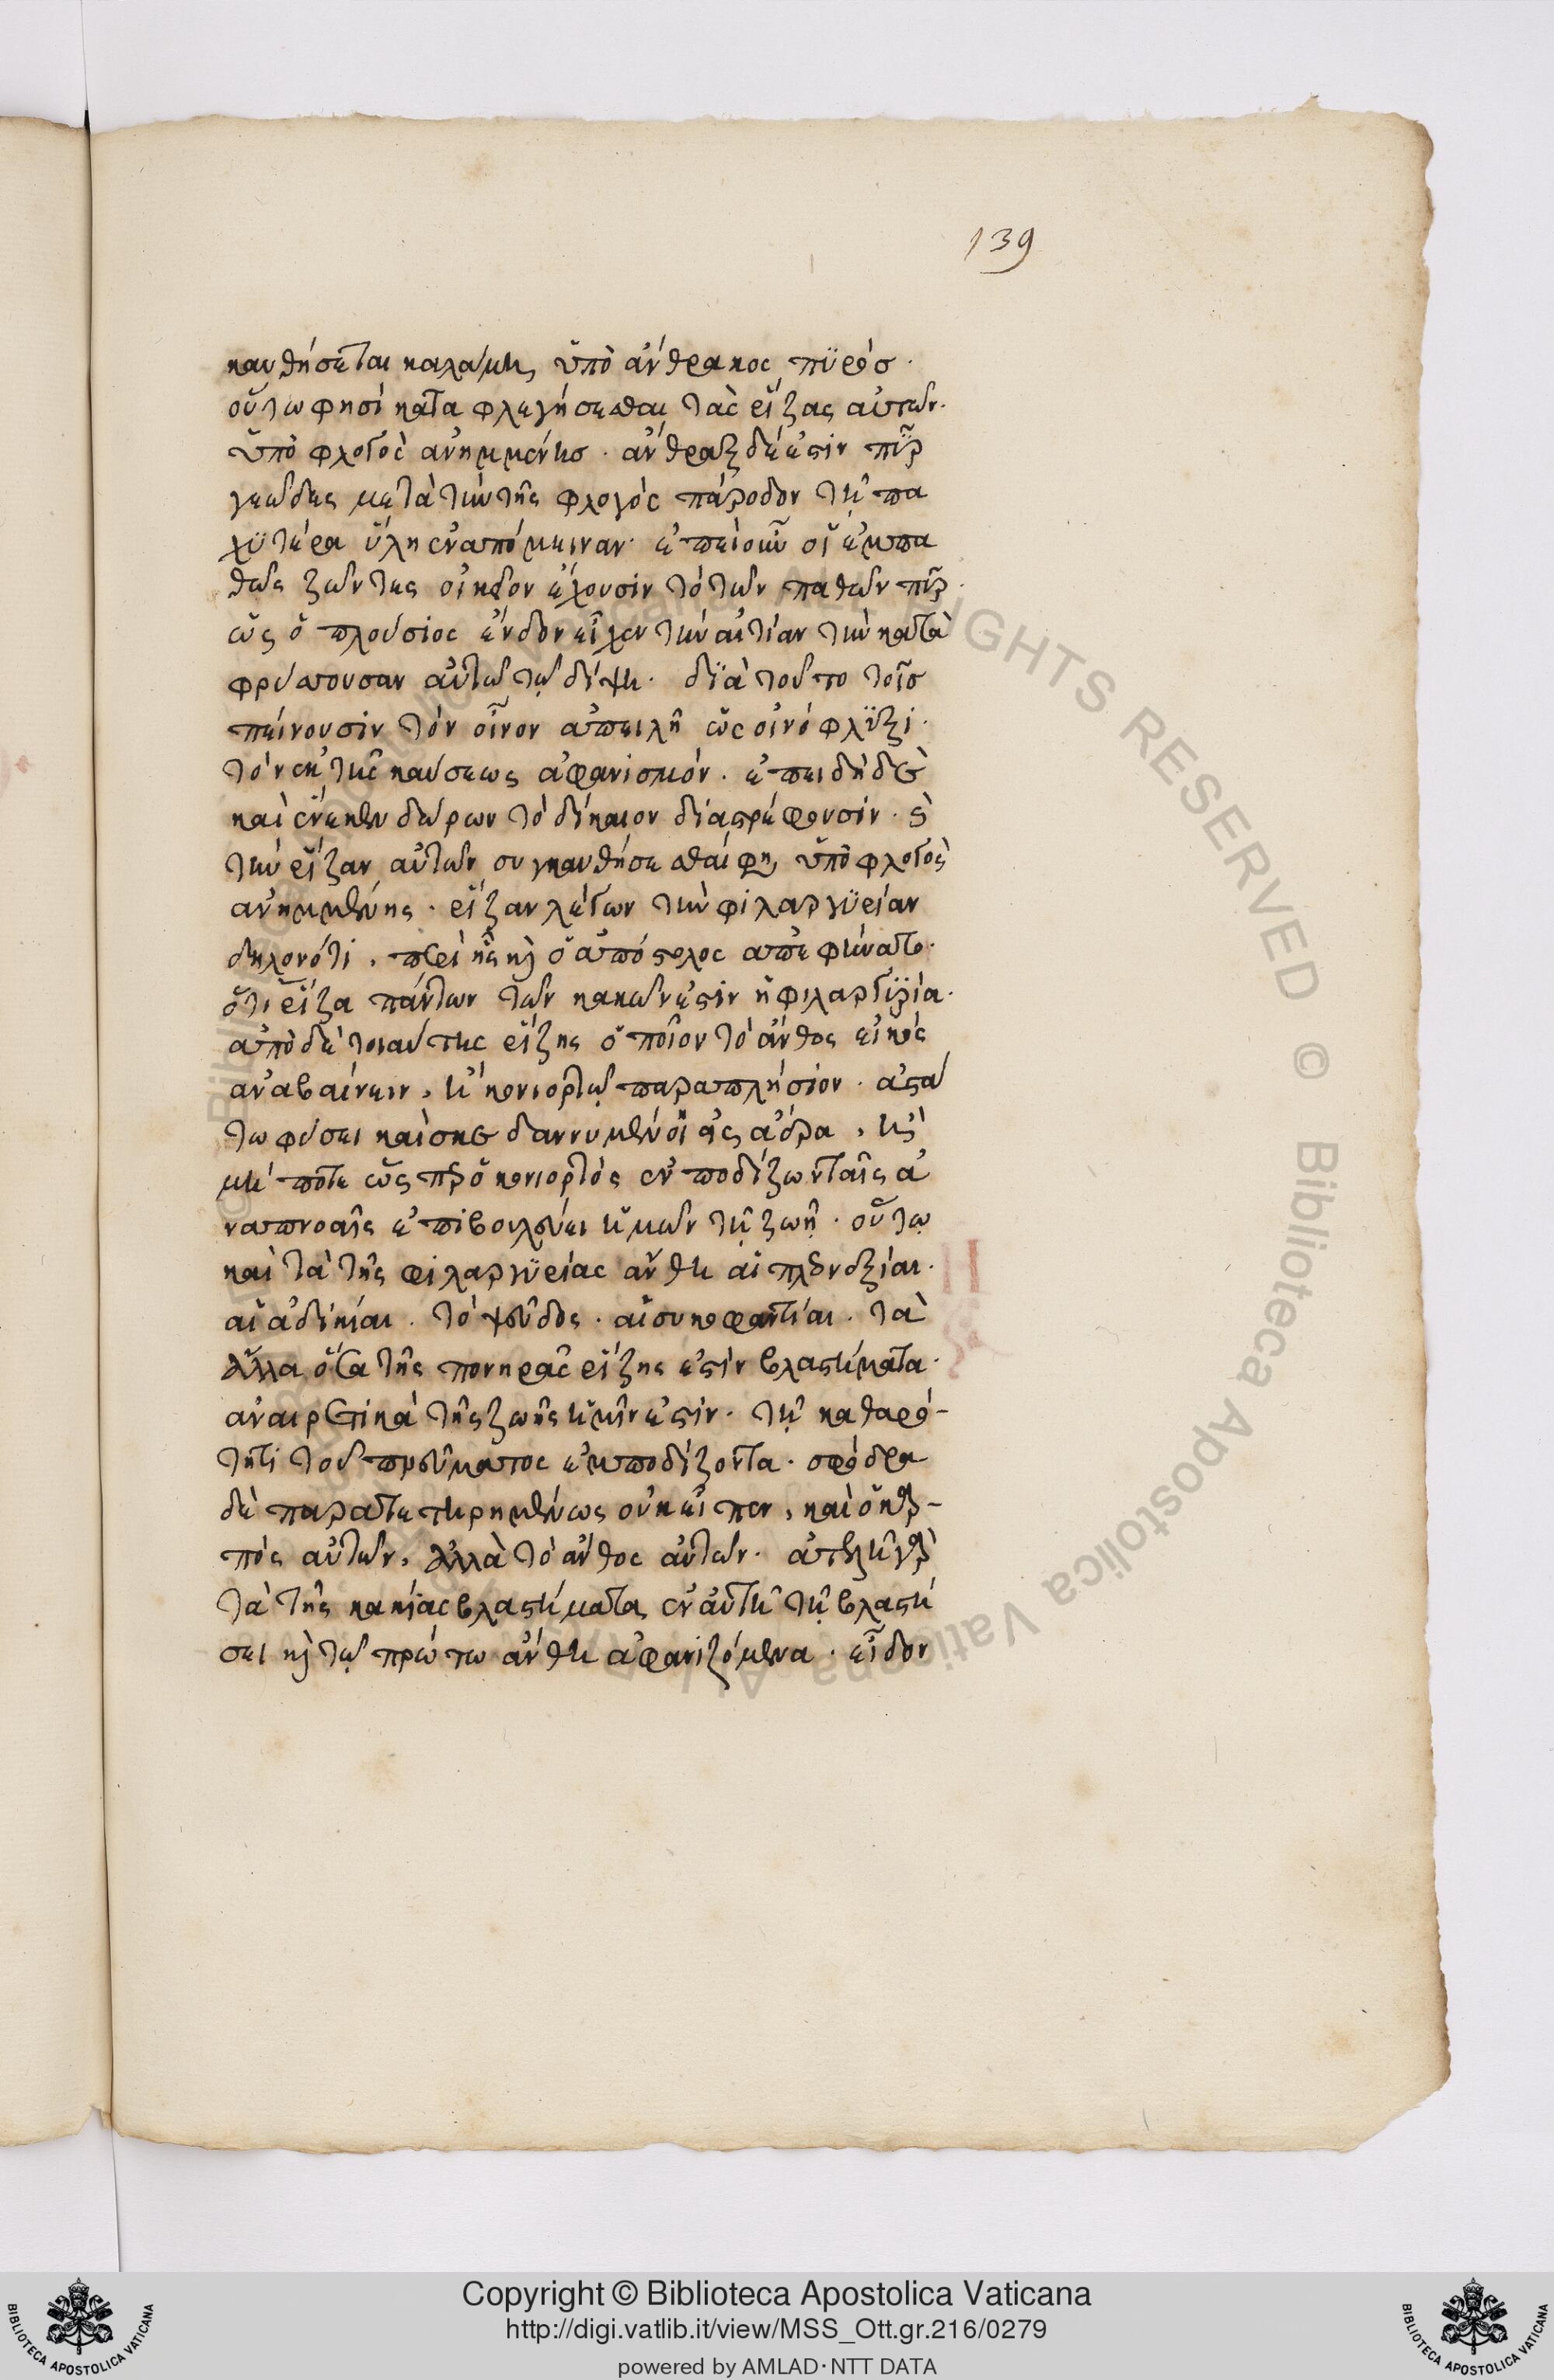 139
καυθήσεται καλάμη, ὑπὸ ἄνθρακος πϋρόσ.
οὕτω φησὶ καταφλεγήσεσθαι τὰς ῥίζας αὐτῶν.
ὑπὸ φλογὸς ἀνημμένησ. ἄνθραξ δέ ἐστιν πῦρ
γεῶδες μετὰ τὴν τῆς φλογὸς πάροδον τῆ πα
χϋτέρα ὕλη ἐναπόμειναν. ἐπεὶ οὖν οἱ ἐμπα
θῶς ζῶντες οἴκοθεν ἔχουσιν τὸ τῶν παθῶν πῦρ.
ὡς ὁ πλούσιος ἔνδον εἶχεν τὴν αἰτίαν τὴν κατα
φρύσσουσαν αὐτῶ τῶ δίψει. δϊὰ τοῦτο τοῖσ
πίνουσιν τὸν οἶνον ἀπειλῆ ὡς οἰνόφλϋξι.
τὸν ἐκ τῆς καύσεως ἀφανισμόν. ἐπειδὴ δὲ
καὶ ἕνεκεν δώρων τὸ δίκαιον διαστρέφουσιν.
τὴν ῥίζαν αὐτῶν συγκαυθήσεσθαί φη, ὑπὸ φλογὸς
ἀνημμένης. ῥίζαν λέγων τὴν φιλαργϋρίαν
δηλονότι. περὶ ἧς κ ὁ ἀπόστολος ἀπεφήνατο.
ὅτι ῥίζα πάντων τῶν κακῶν ἐστιν ἡ φιλαργϋρία.
ἀπὸ δὲ τοιαύτης ῥίζης ὁποῖον τὸ ἄνθος εἰκὸς
ἀναβαίνειν, ἢ κονιορτῶ παραπλήσιον. ἀστά
τω φύσει καὶ σκεδαννυμένοι εἰς ἀέρα,
μή ποτε ὥσπερ ὁ κονιορτὸς ἐνποδίζων ταῖς ἀ
ναπνοαῖς ἐπιβουλεύει ἡμῶν τῆ ζωῆ. οὕτω
καὶ τὰ τῆς φιλαργϋρίας ἄνθη αἱ πλεονεξίαι.
αἱ ἀδικίαι. τὸ ψεῦδος. αἱ συκοφαντίαι. τὰ
ἄλλα ὅσα τῆς πονηρᾶς ῥίζης ἐστὶν βλαστήματα.
ἀναιρετικὰ τῆς ζωῆς ἡμῖν ἐστιν. τῆ καθαρό-
τητι τοῦ πνεύματος ἐμποδίζοντα. σφόδρα
δὲ παρατετηρημένως οὐκ εἶπεν, καὶ ὁ καρ-
πὸς αὐτῶν. ἀλλὰ τὸ ἄνθος αὐτῶν. ἀτελῆ γὰρ
τὰ τῆς κακίας βλαστήματα, ἐν αὐτῆ τῆ βλαστή
σει κ τῶ πρώτω ἄνθει ἀφανιζόμενα. εἶδον
Copyright © Biblioteca Apostolica Vaticana
http://digi.vatlib.it/view/MSS_Ott.gr.216/0279
powered by AMLAD·NTT DATA